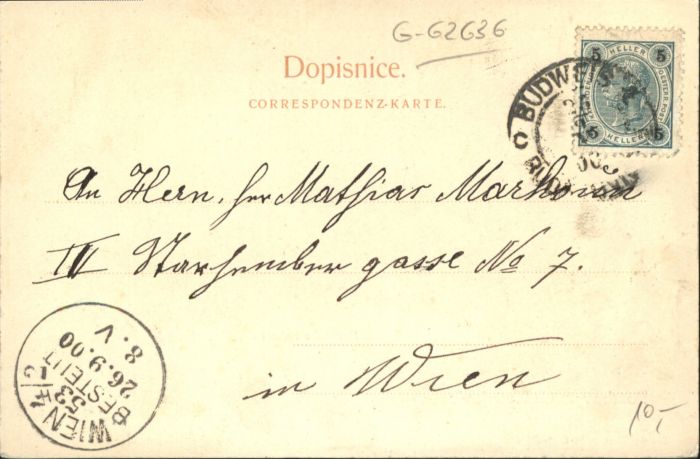 G-62636
Dopisnice.
CORRESPONDENZ-KARTE.
5 HELLER 5
5 HELLER 5
BUDWE
An Herrn, Herr Mathias
IV Starhemberg gasse No 7.
in Wien
WIEN 4/1
53
BESTELLT
26.9.00
8. V
10,-